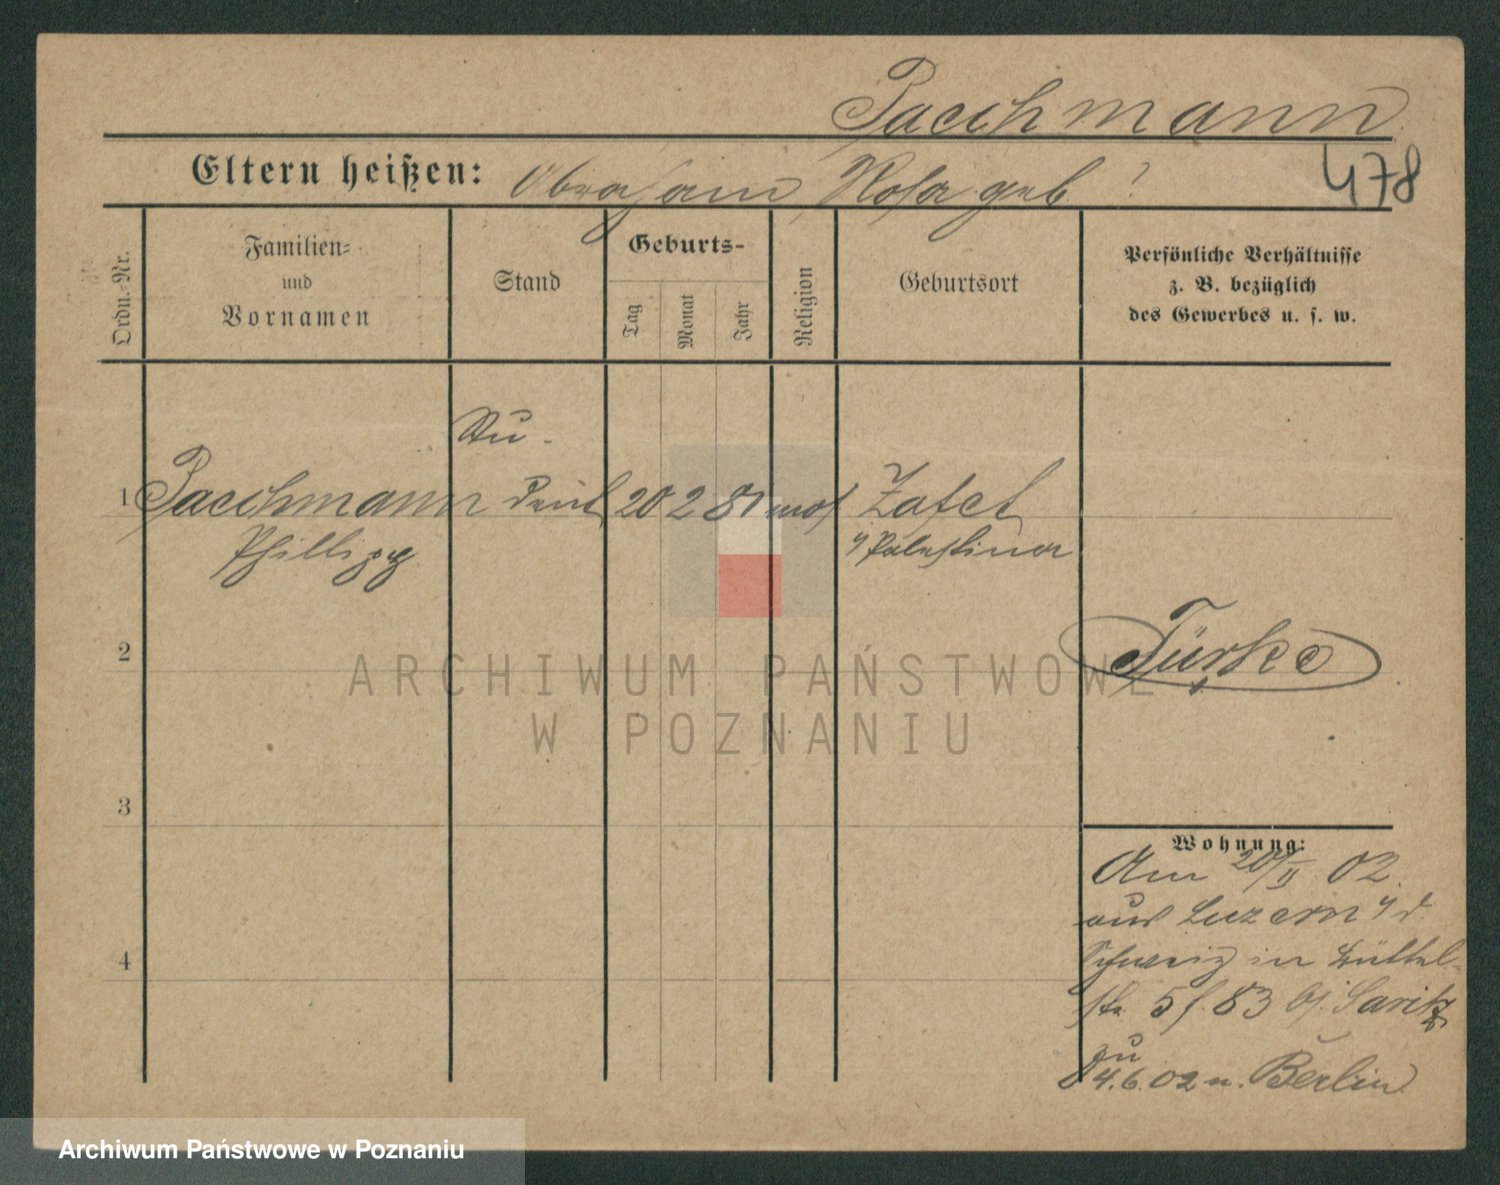 Pacchmann
Eltern heißen: Abraham, Rosa geb ?
478
Ordn.-Nr.
Familien- und Vornamen
Stand
Geburts-
Tag
Monat
Jahr
Religion
Geburtsort
Persönliche Verhältnisse
z. B. bezüglich
des Gewerbes u. s. w.
Stu-
1 Pacchmann dent 20 2 81 mos Zafet
Phillipp
Palestina
2
Türke
3
4
Wohnung:
Am 20/II 02
aus Luzern d.
Schweiz in Büttel-
str. 5 83 Saritz
zu
4.6.02 n. Berlin
ARCHIWUM PAŃSTWOWE
W POZNANIU
Archiwum Państwowe w Poznaniu